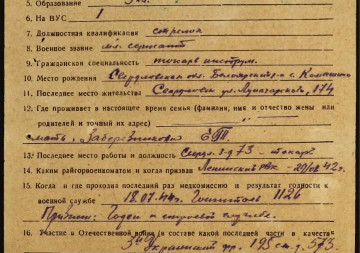 5. Образование
6. На ВУС 1
7. Должностная квалификация стрелок
8. Военное звание мл. сержант
9. Гражданская специальность токарь инструм.
10. Место рождения Свердловская обл. Белоярский с.
11. Последнее место жительства Свердловск ул. Луначарского, 174
12. Где проживает в настоящее время семья (фамилия, имя и отчество жены или
родителей и точный их адрес)
мать, ЕТ
13. Последнее место работы и должность Свердл. з-д 73 - токарь
14. Каким райгорвоенкоматом и когда призван Ленинский РВК - 42 г.
15. Когда и где проходил последний раз медкомиссию и результат годности к
военной службе 18.07.44г. Госпиталь 1126
Годен к строевой службе.
16. Участие в Отечественной войне (в составе какой последней части в качестве
3й Украинский фр. 195 с.д. 573.